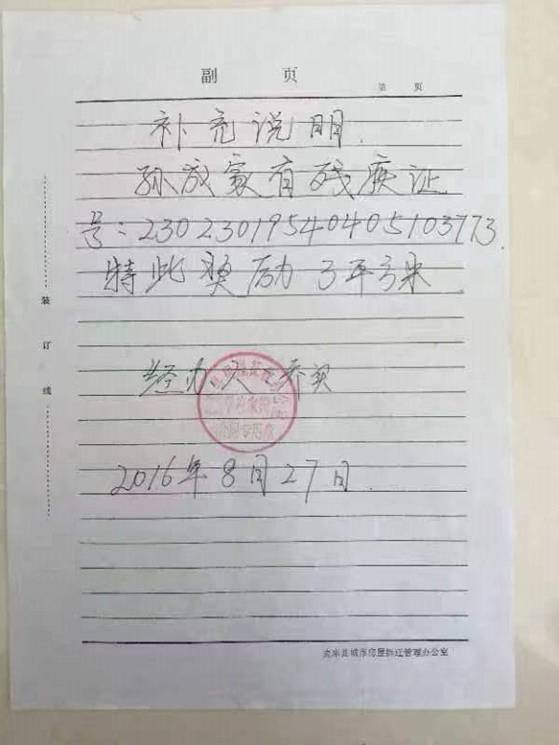 副 页
第 页
补充说明.
孙成家有残疾证
号:23023019540405103773.
特此奖励3平方米
经办人:乔
2016年8月27日.
装
订
线
克东县城市房屋拆迁管理办公室